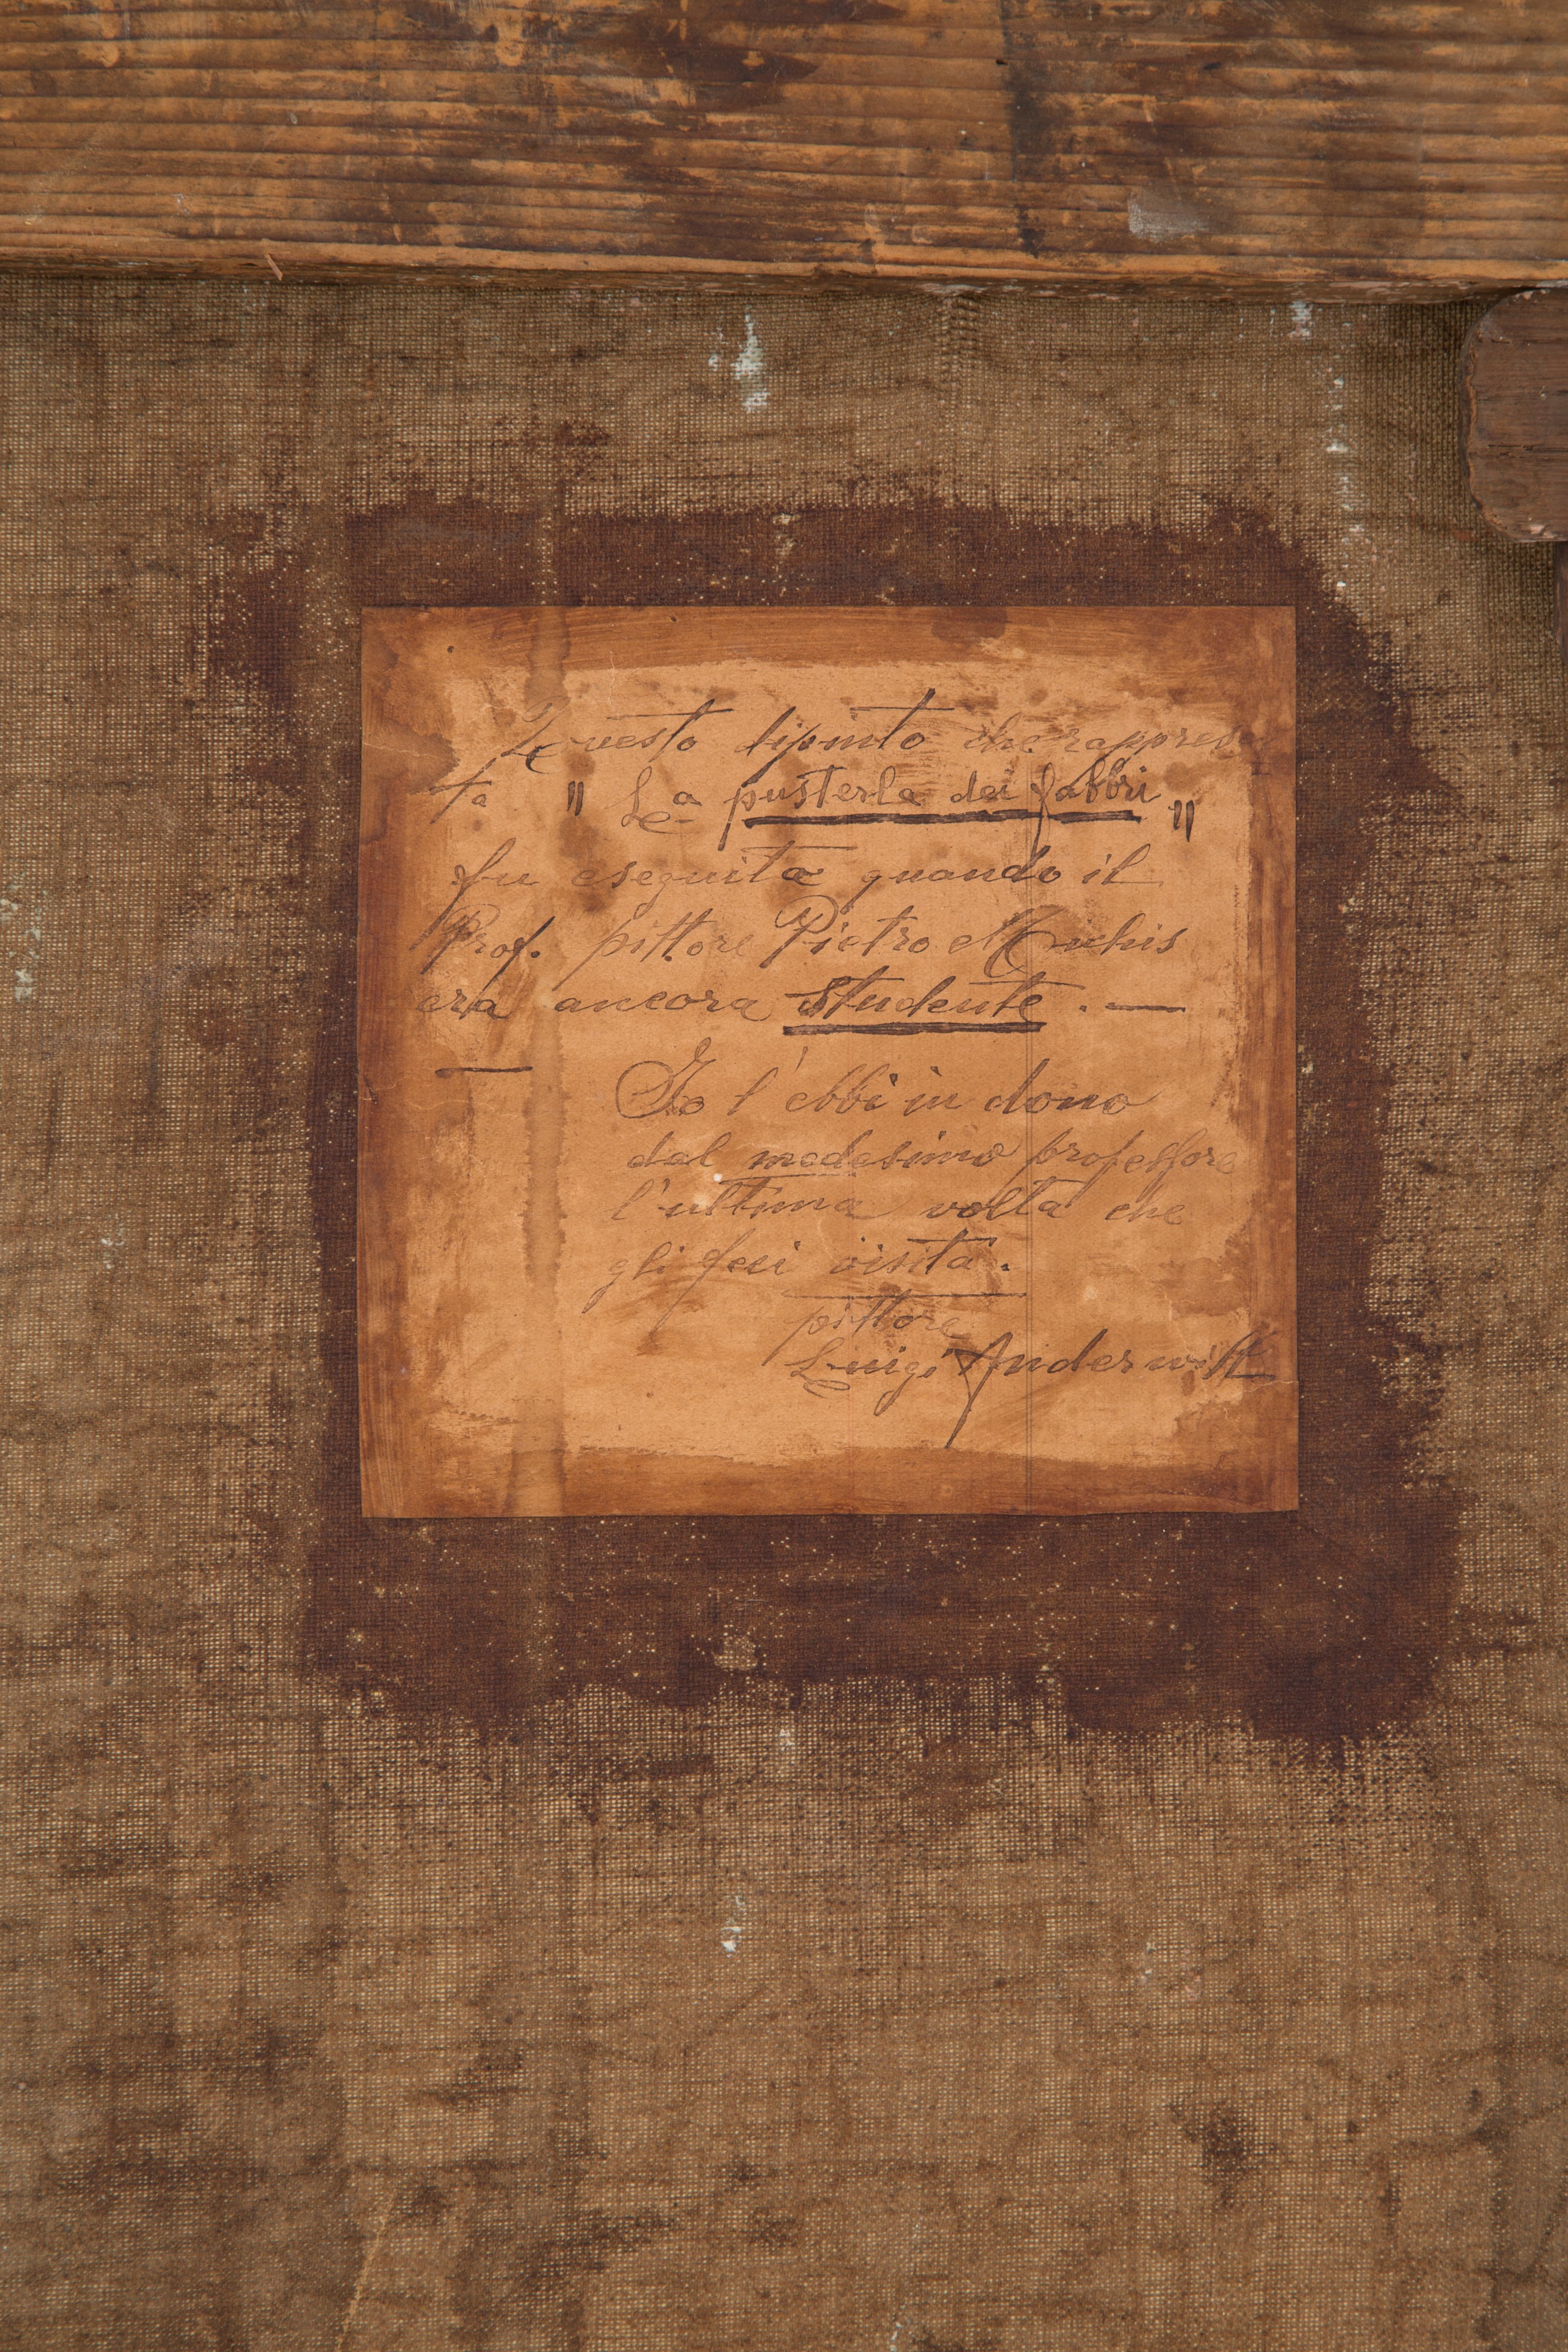 Questo dipinto che rappres
ta " La pusterla dei fabbri "
fu eseguita quando il
Prof. pittore Pietro Michis
era ancora studente . —
Io l'ebbi in dono
dal medesimo professore
l'ultima volta che
gli feci visita.
pittore
Luigi Anderwill